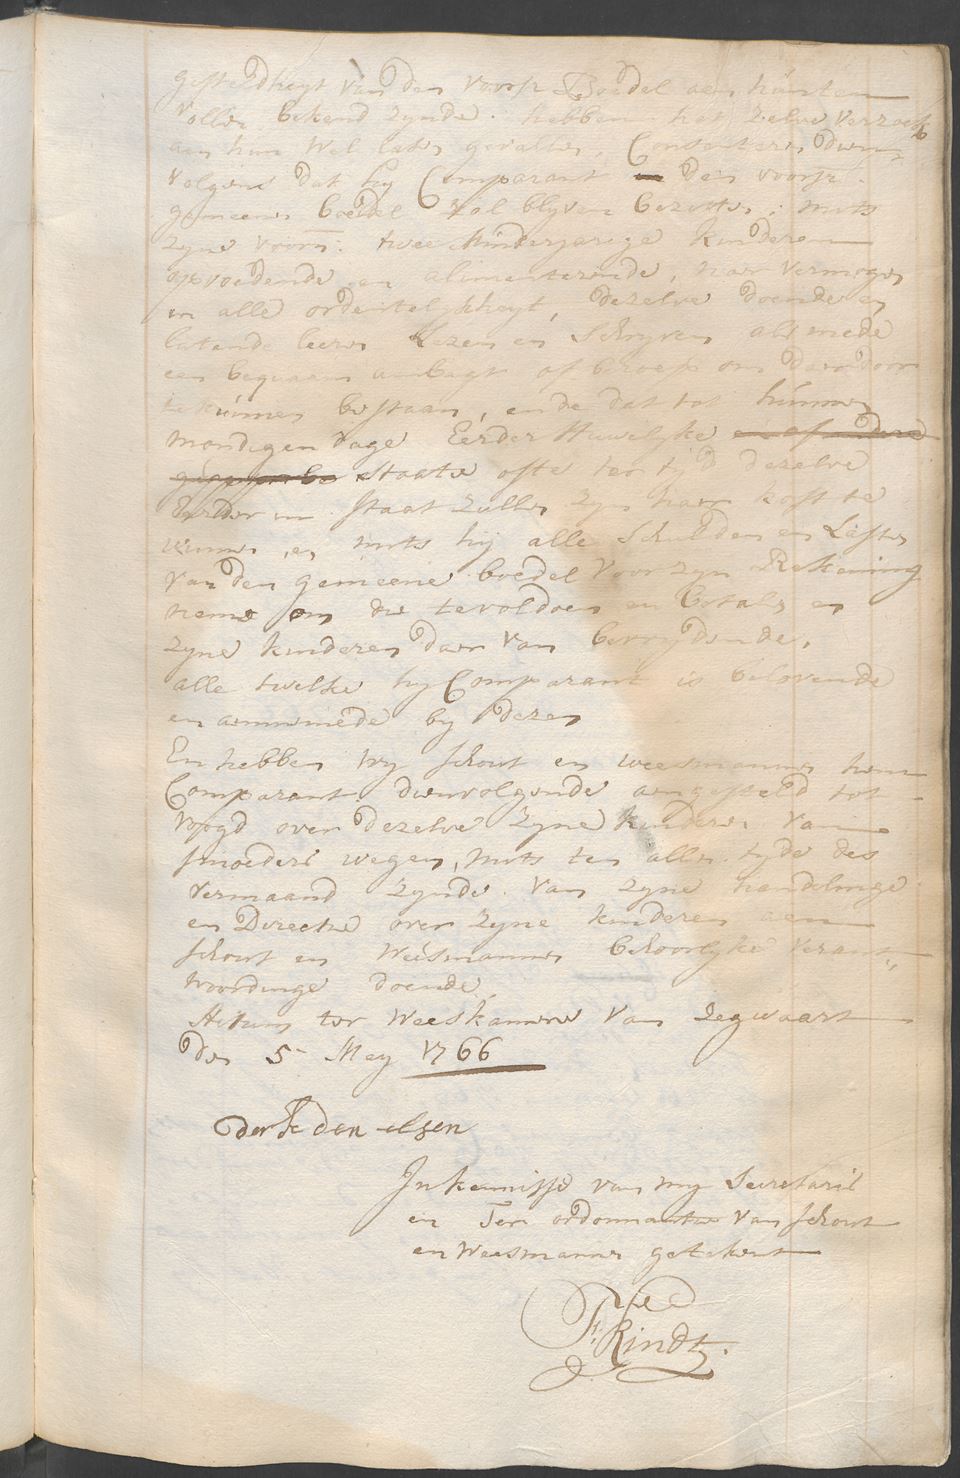 gesteldheyt van den voorsz Boedel aen hunten
vollen bekend zynde. hebben het zelve verzoek
aen hun wel laten gevallen, Consenteren dien
volgens dat hy Comparant in den voorsz.
gemeene boedel zal blyven bezitten, mits
zyne voorn: twee Minderjarige kinderen
opvoedende en alimenterende, naar vermogen
in alle ordentelykheyt, dezelve doende en
latende leeren Lezen en Schryven als mede
een bequaam ambagt of beroep om daardoor
te kunnen bestaan, ende dat tot hunne
mondigen dage Eerder Huwelyke en of andere
geapprobe Staate ofte ter tijd dezelve
Eerder in Staat zullen zyn haar kost te
winnen, en mits hij alle Schulden en Lasten
van den gemeene boedel voor zyn Rekening
neme om die te voldoen en betalen en
zyne kinderen daar van bevrydende,
alle twelke hy Comparant is belovende
en aannemende by dezen
En hebben wy Schout en weesmannen hem
Comparant dienvolgende aengesteld tot
voogd over dezelve zyne kinderen van
smoeders wegen, mits ten allen tyde des
vermaand zynde van zyne handelinge
en Directie over zyne kinderen aen
Schout en Weesmannen behoorlyke verant„
woordinge doende,
Actum ter Weeskamere van Zegwaart
den 5 Mey 1766
derk den elsen
In kennisse van my Secretaris
en Ter ordonnantie van Schout
en Weesmannen getekent
F: Rindt.